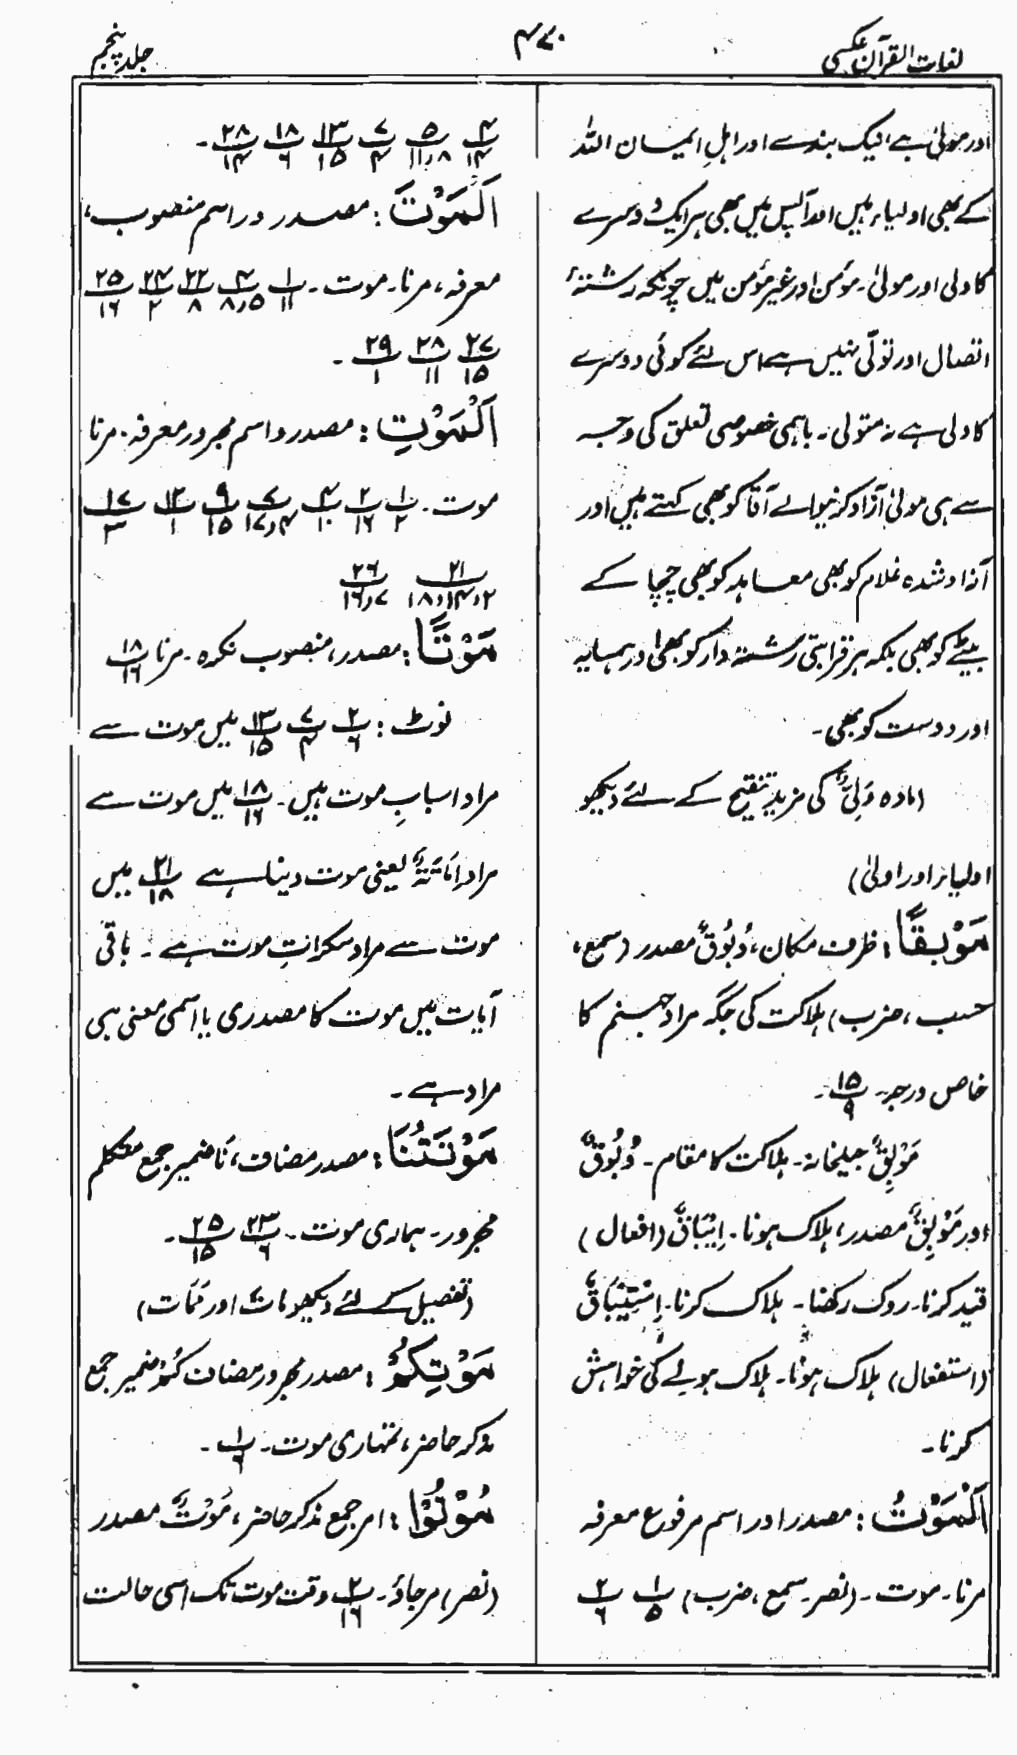 لغات القرآن عکسی
۴۷۰
جلد پنجم
اور مولیٰ ہے، نیک بندے اور اہلِ ایمان اللہ
کے بھی اولیاء ہیں اور آپس میں بھی ہر ایک دوسرے
کا ولی اور مولیٰ۔ مؤمن اور غیر مؤمن میں چونکہ رشتۂ
اتصال اور تولّی نہیں ہے اس لئے کوئی دوسرے
کا ولی ہے نہ متولی۔ باہمی خصوصی تعلق کی وجہ
سے ہی مولیٰ آزاد کرنیوالے آقا کو بھی کہتے ہیں اور
آزاد شدہ غلام کو بھی معاہد کو بھی چچا کے
بیٹے کو بھی بلکہ ہر قرابتی رشتہ دار کو بھی اور ہمسایہ
اور دوست کو بھی۔
(مادہ وَلِیٌ کی مزید تنقیح کے لئے دیکھو
اولیاء اور اولیٰ)
مَوْبِقًا: ظرف مکان، وُبُوقٌ مصدر (سمع،
حسب، ضرب) ہلاکت کی جگہ مراد جہنم کا
خاص درجہ۔ ۱۵/۹۔
مَوْبِقٌ جیلخانہ۔ ہلاکت کا مقام۔ وُبُوقٌ
اور مَوْبِقٌ مصدر، ہلاک ہونا۔ اِیْبَاقٌ (افعال)
قید کرنا۔ روک رکھنا۔ ہلاک کرنا۔ اِسْتِیْبَاقٌ
(استفعال) ہلاک ہونا۔ ہلاک ہونے کی خواہش
کرنا۔
اَلْمَوْتُ: مصدر اور اسم مرفوع معرفہ
مرنا۔ موت۔ (نصر۔ سمع، ضرب) ۱/۵ ۲/۶
۴/۱۴ ۵/۱۱،۸ ۷/۴ ۱۳/۱۵ ۱۸/۶ ۲۸/۱۴۔
اَلْمَوْتَ: مصدر و اسم منصوب،
معرفہ، مرنا۔ موت۔ ۱/۱۱ ۴/۸،۵ ۲۲/۸ ۲۴/۲ ۲۵/۱۶
۲۷/۱۵ ۲۸/۱۱ ۲۹/۱۔
اَلْمَوْتِ: مصدر و اسم مجرور معرفہ۔ مرنا
موت۔ ۱/۲ ۲/۱۶ ۴/۱۰ ۷/۱۷،۴ ۹/۱۵ ۱۲/۱ ۱۷/۳
۲۱/۱۸،۱۴،۲ ۲۶/۱۶،۷
مَوْتًا: مصدر، منصوب نکرہ۔ مرنا ۱۸/۱۶
نوٹ: ۲/۶ ۷/۴ ۱۳/۱۵ میں موت سے
مراد اسبابِ موت ہیں۔ ۱۸/۱۶ میں موت سے
مراد اِمَاتَۃٌ یعنی موت دینا ہے ۲۱/۱۸ میں
موت سے مراد سکراتِ موت ہے۔ باقی
آیات میں موت کا مصدری یا اسمی معنی ہی
مراد ہے۔
مَوْتَتُنَا: مصدر مضاف، نَا ضمیر جمع متکلم
مجرور۔ ہماری موت۔ ۲۳/۶ ۲۵/۱۵۔
(تفصیل کے لئے دیکھو مات اور مَمَات)
مَوْتِکُمْ: مصدر مجرور مضاف کُمْ ضمیر جمع
مذکر حاضر، تمہاری موت۔ ۱/۶۔
مُوْتُوْا: امر جمع مذکر حاضر، مَوْتٌ مصدر
(نصر) مرجاؤ۔ ۲/۱۶ وقت موت تک اسی حالت